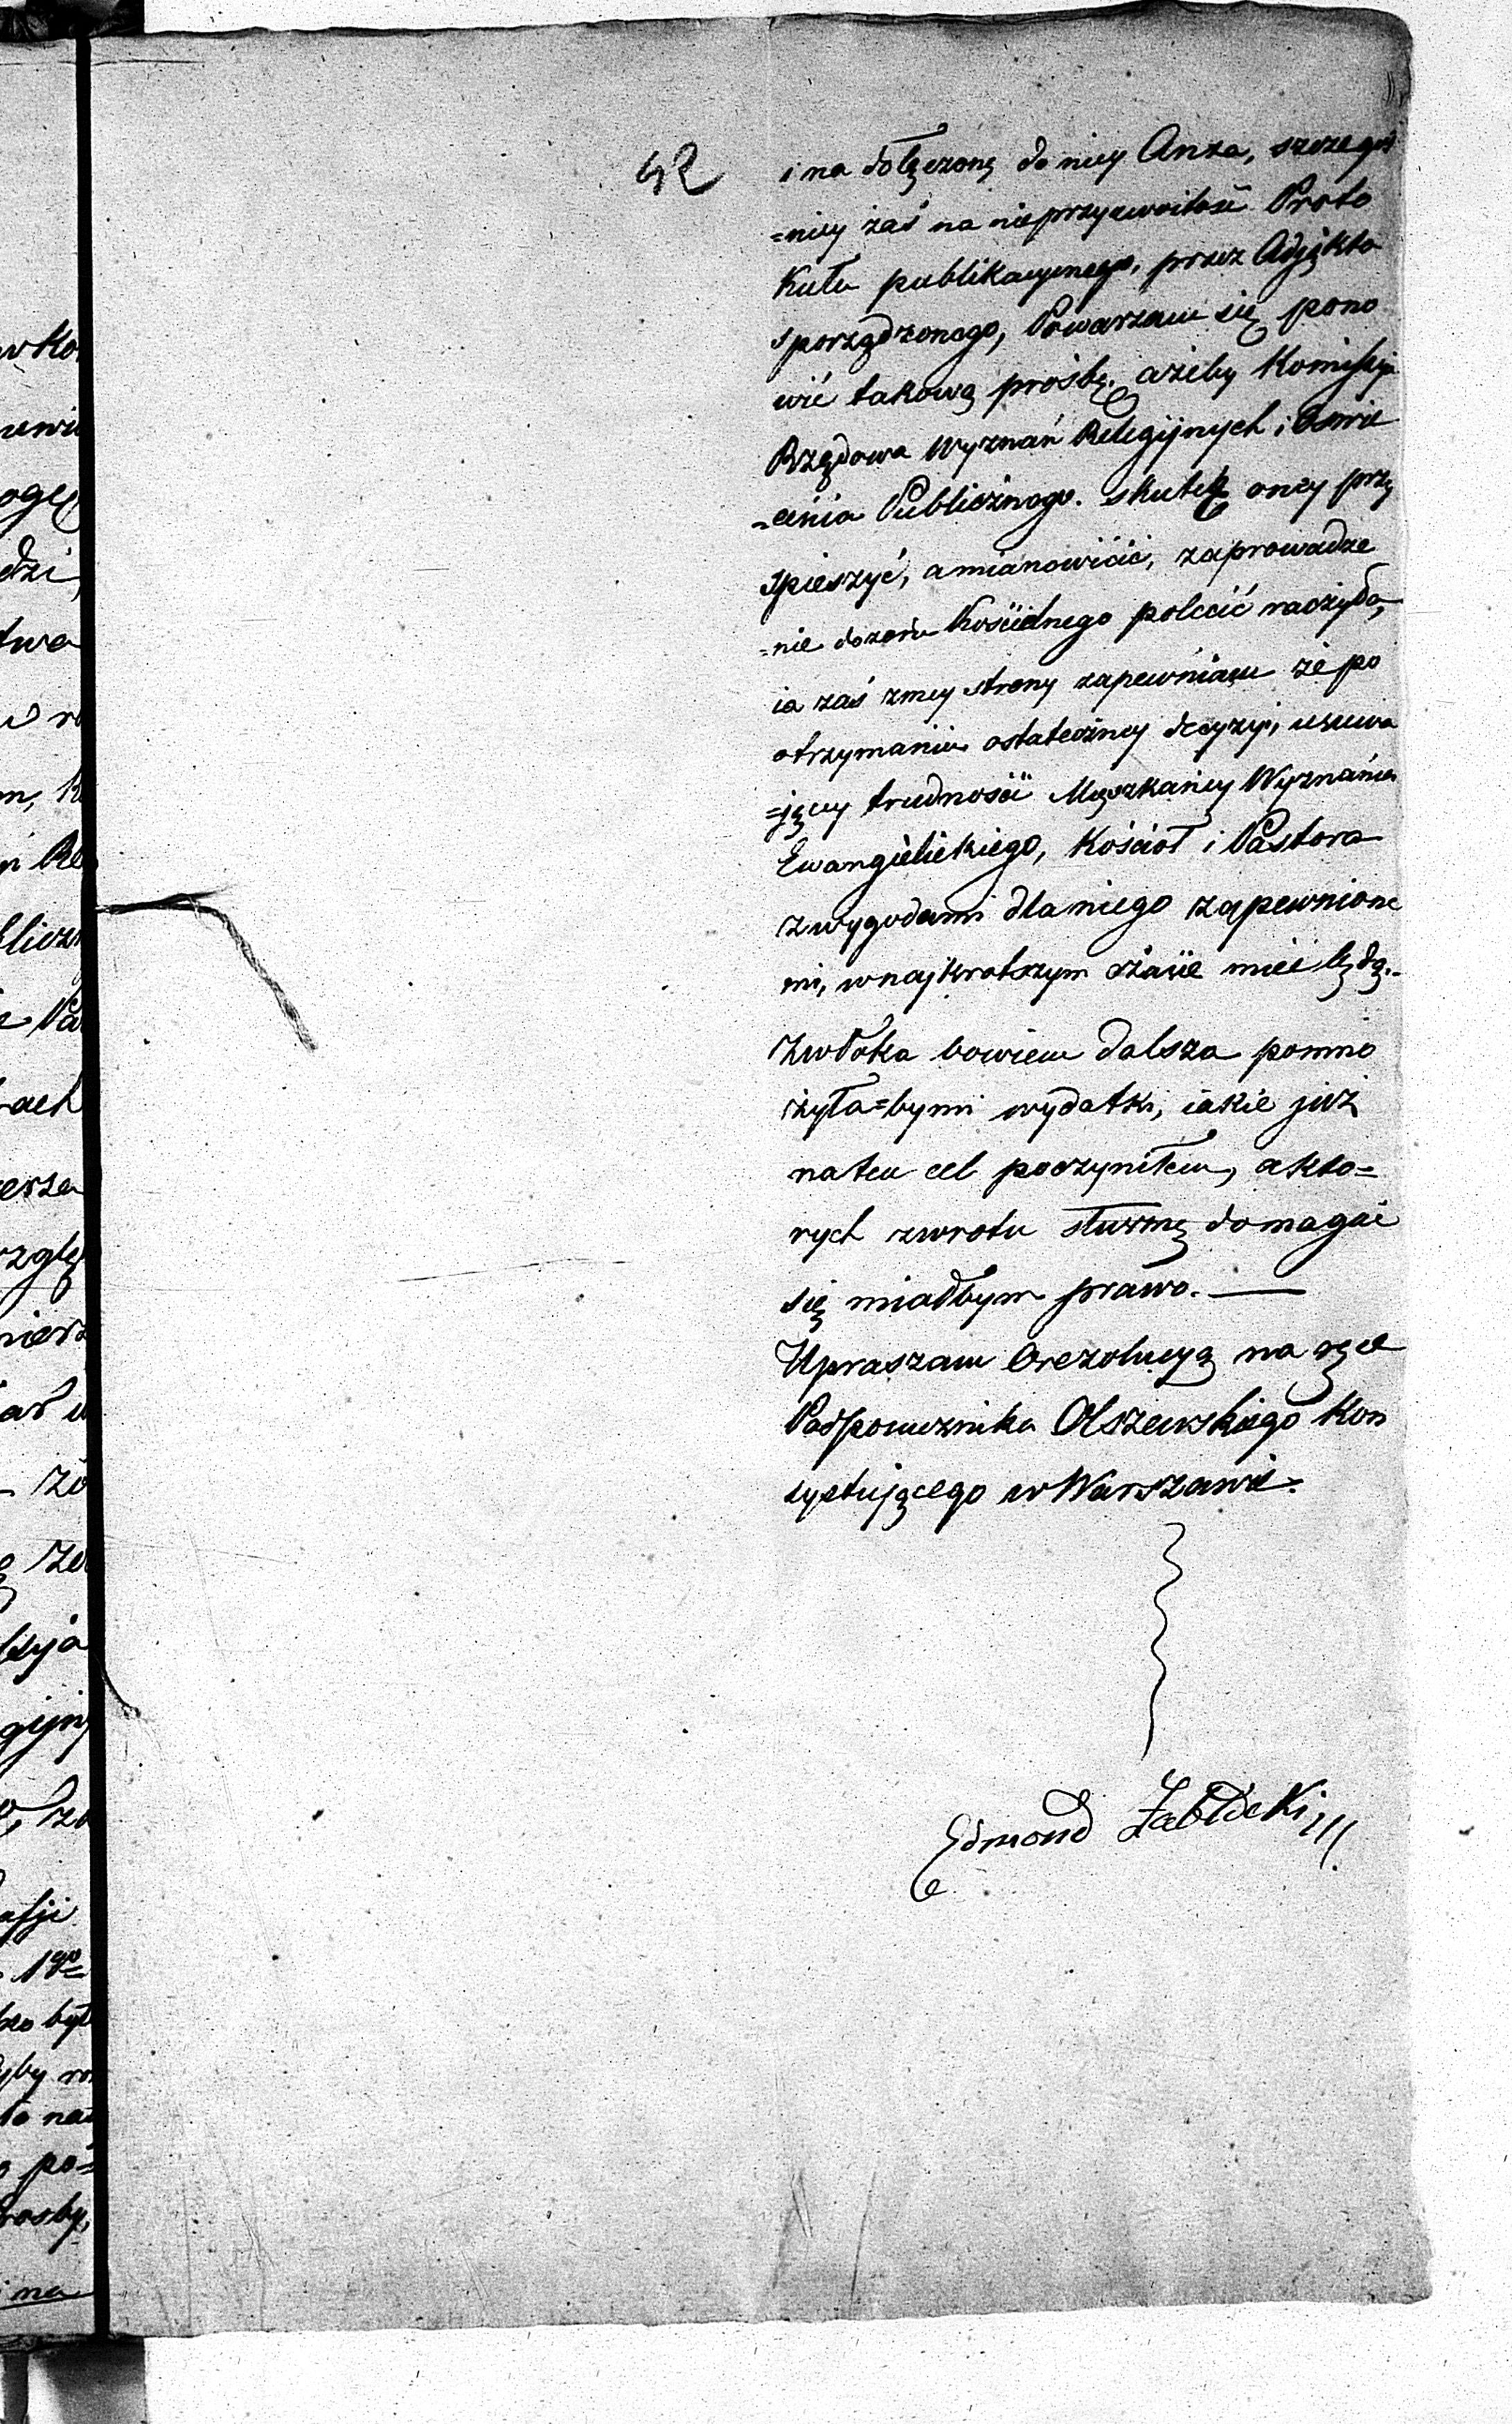 42
i na dołączoną do niey Anxa, szczegól
=niey zaś na nieprzyzwoitość Proto
kułu publikacyinego, przez Adjunkta
sporządzonego, Poważam się pono
wić takową prośbę, ażeby Kommissyja
Rządowa Wyznań Religijnych i Oswie
=cenia Publicznego. skutek oney przy
spieszyć, a mianowicie, zaprowadze
=nie dozoru Kościelnego polecić raczyła,
ia zaś zmey strony zapewniam że po
otrzymaniu ostateczney decyzyi, usuwa
=jącey trudności Mieszkańcy Wyznania
Ewangielickiego, Kościoł i Pastora
z wygodami dla niego zapewnione
mi, w najkrotszym czasie mieć będą.
Zwłoka bowiem dalsza pomno
żyła=by mi wydatki, iakie już
na ten cel poczyniłem, a kto=
rych zwrotu słuszne domagać
się miałbym prawo. —
Upraszam O rezolucyą na ręce
Podporucznika Olszewskiego Kon
systującego w Warszawie.
Edmond Zabłocki